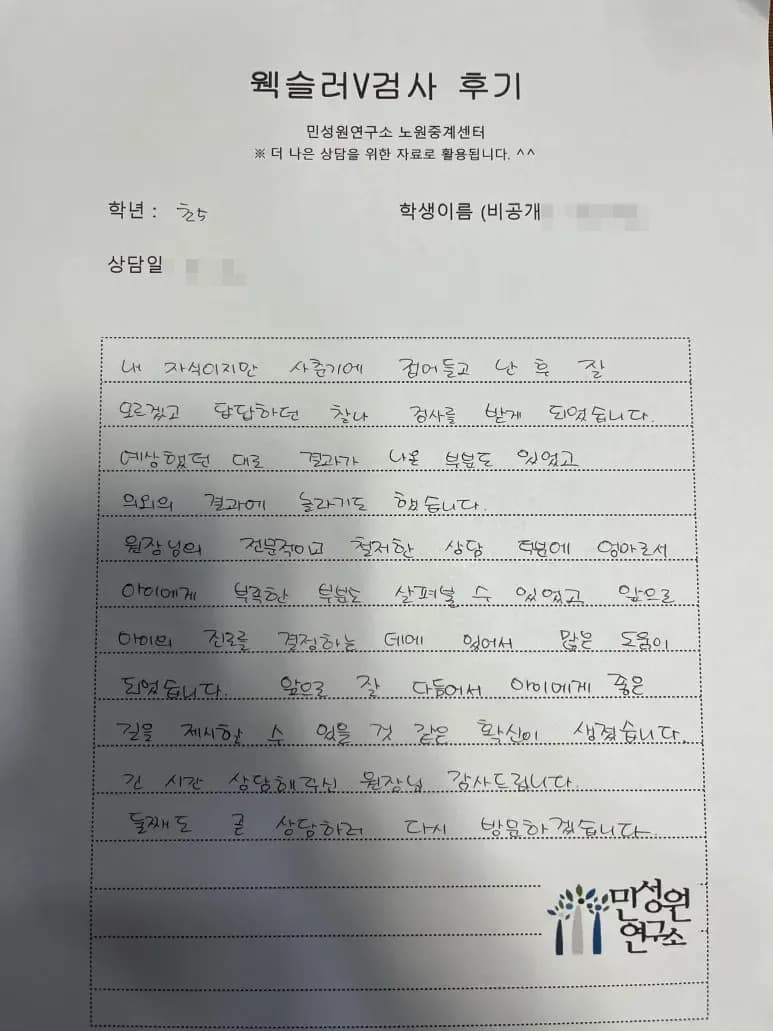 웩슬러V검사 후기
민성원연구소 노원중계센터
※ 더 나은 상담을 위한 자료로 활용됩니다. ^^
학년 : 초5
학생이름 (비공개
상담일
내 자식이지만 사춘기에 접어들고 난 후 잘
모르겠고 답답하던 찰나 검사를 받게 되었습니다.
예상했던 대로 결과가 나온 부분도 있었고
의외의 결과에 놀라기도 했습니다.
원장님의 전문적이고 철저한 상담 덕분에 엄마로서
아이에게 부족한 부분도 살펴볼 수 있었고 앞으로
아이의 진로를 결정하는 데에 있어서 많은 도움이
되었습니다. 앞으로 잘 다듬어서 아이에게 좋은
길을 제시할 수 있을 것 같은 확신이 생겼습니다.
긴 시간 상담해주신 원장님 감사드립니다.
둘째도 곧 상담하러 다시 방문하겠습니다.
민성원
연구소